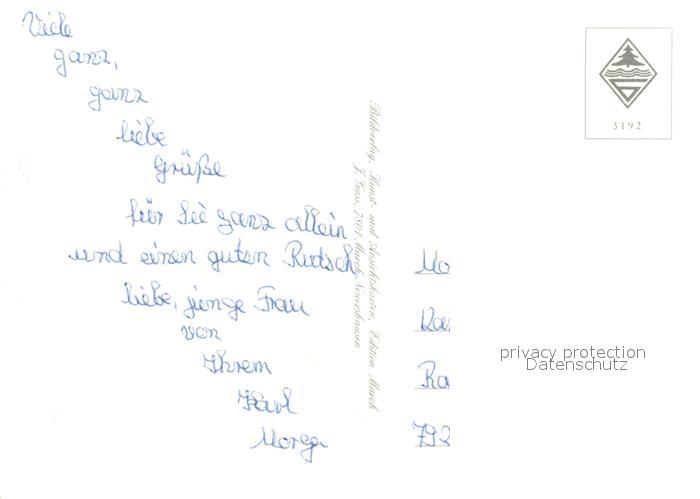 Viele
ganz,
ganz
liebe
Grüße
für Sie ganz allein
und einen guten Rutsch
liebe, junge Frau
von
Ihrem
Karl
Bildverlag, Kunst- und Ansichtskarten, Edition March
7801 March-Neuershausen
3192
Mo
Ra
792
privacy protection
Datenschutz